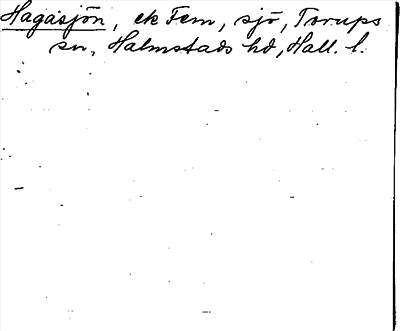 Hagasjön, ek Fem, sjö, Torups
sn, Halmstads hd, Hall. l.